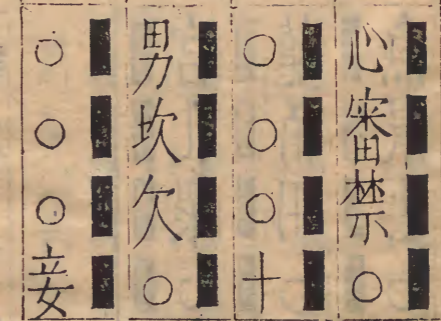 ■■■■
心審禁○
■■■■
○○○十
■■■■
男坎欠○
■■■■
○○○妾